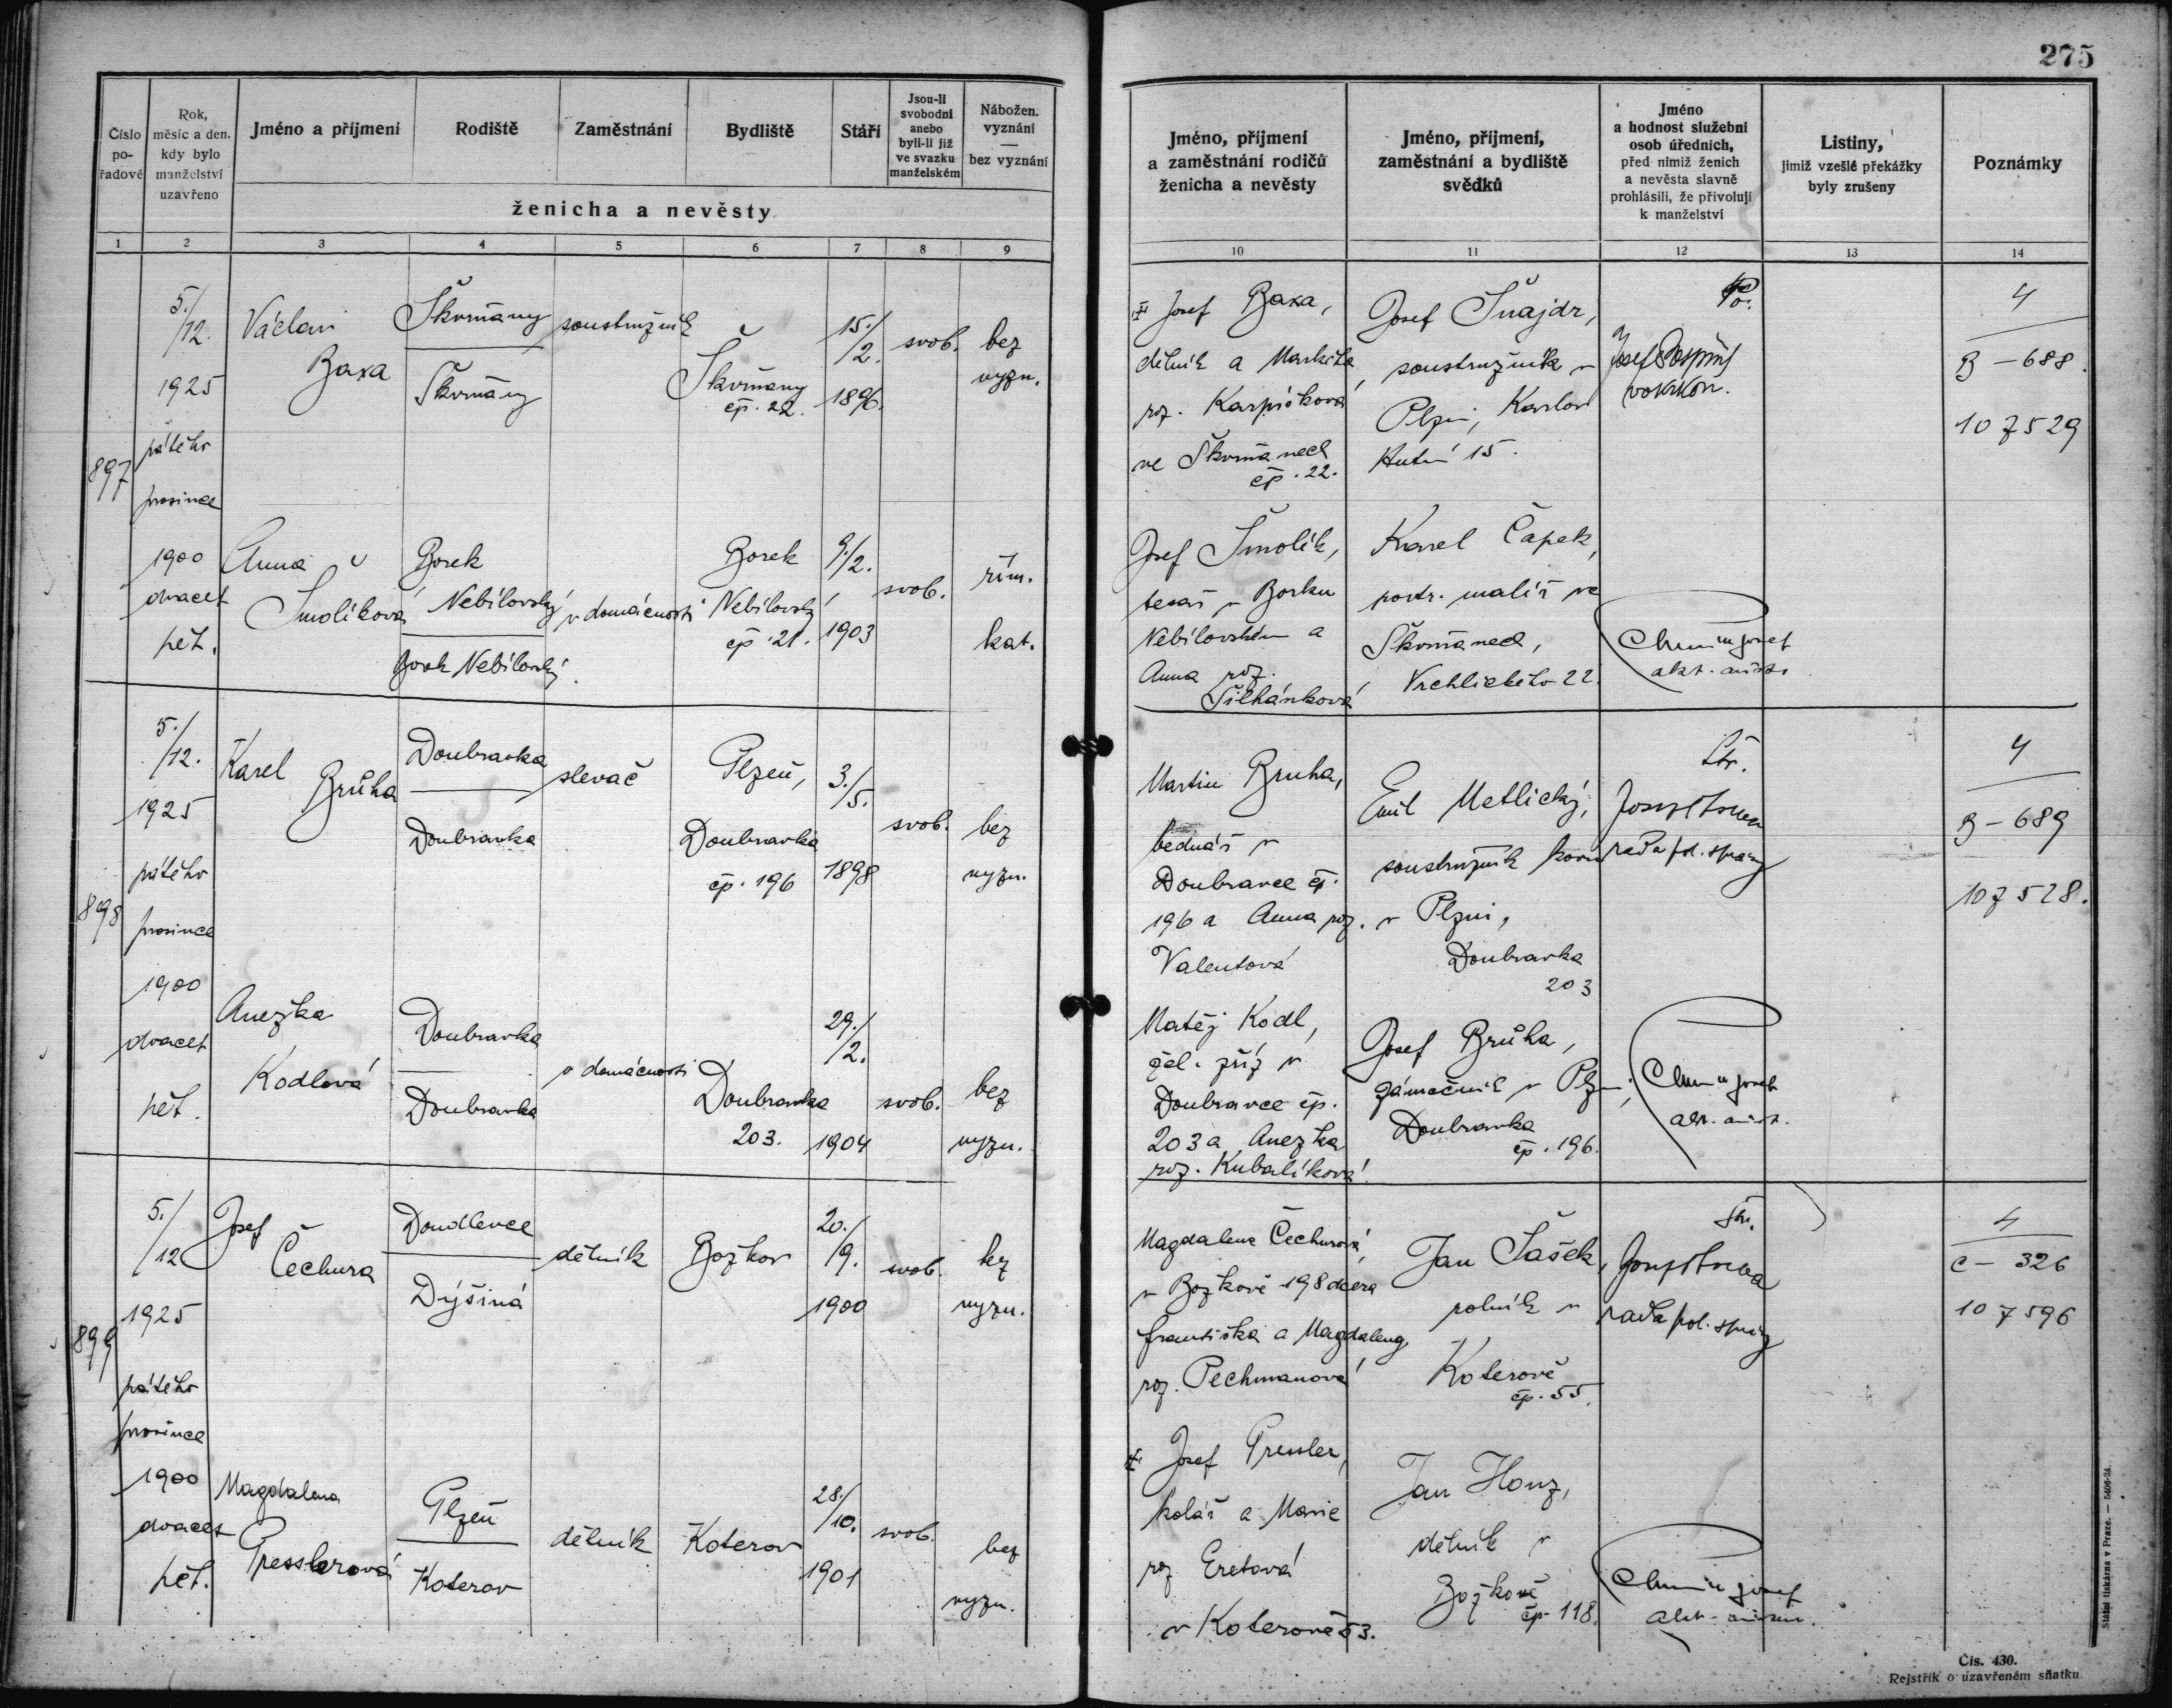 275
Číslo pořadové
Rok, měsíc a den, kdy bylo manželství uzavřeno
Jméno a příjmení
Rodiště
Zaměstnání
Bydliště
Stáří
Jsou-li svobodni anebo byli-li již ve svazku manželském
Nábožen. vyznání — bez vyznání
ženicha a nevěsty
Jméno, příjmení a zaměstnání rodičů ženicha a nevěsty
Jméno, příjmení, zaměstnání a bydliště svědků
Jméno a hodnost služební osob úředních, před nimiž ženich a nevěsta slavně prohlásili, že přivolují k manželství
Listiny, jimiž vzešlé překážky byly zrušeny
Poznámky
1 2 3 4 5 6 7 8 9 10 11 12 13 14
897
5./12.
1925
pátého
prosince
1900
dvacet
pět.
Václav
Baxa
Škvrňany
Škvrňany
soustružník
Škvrňany
čp. 22.
15./2.
1896.
svob.
bez
vyzn.
Josef Baxa,
dělník a Markéta
roz. Karpíšková
ve Škvrňanech
čp. 22.
Josef Šnajdr,
soustružník v
Plzni, Karlov
Hutní 15.
Josef Pospíšil
4
B – 688.
107529
Anna
Smolíková
Borek
Nebílovský
Borek Nebílovský.
v domácnosti
Borek
Nebílovský
čp. 21.
9./2.
1903
svob.
řím.
kat.
Josef Smolík,
tesař v Borku
Nebílovském a
Anna roz.
Šilhánková
Karel Čapek,
portr. malíř ve
Škvrňanech,
Vrchlického 22.
898
5./12.
1925
pátého
prosince
1900
dvacet
pět.
Karel
Brůha
Doubravka
Doubravka
slevač
Plzeň,
Doubravka
čp. 196
3./5.
1898
svob.
bez
vyzn.
Martin Bruha,
bednář v
Doubravce čp.
196 a Anna roz.
Valentová
Emil Metlický,
soustružník kovů
v Plzni,
Doubravka
203
Str.
rada pol. správy
4
B – 689
107528.
Anežka
Kodlová
Doubravka
Doubravka
v domácnosti
Doubravka
203.
29./2.
1904
svob.
bez
vyzn.
Matěj Kodl,
žel. zříz v
Doubravce čp.
203 a Anežka
roz. Kubalíková.
Josef Brůha,
zámečník v Plzni,
Doubravka
čp. 196.
899
5./12
1925
pátého
prosince
1900
dvacet
pět.
Josef
Čechura
Doudlevce
Dýšiná
dělník
Božkov
20./9.
1900
svob.
bez
vyzn.
Magdalena Čechurová,
v Božkově 198 dcera
Františka a Magdaleny
roz. Pechmanová
Jan Šašek,
rolník v
Koterově
čp. 55.
Str.
rada pol. správy
4
C – 326
107596
Magdalena
Presslerová
Plzeň
Koterov
dělník
Koterov
28./10.
1901
svob.
bez
vyzn.
Josef Pressler,
kolář a Marie
roz Eretová
v Koterově 53.
Jan Honz,
dělník v
Božkově
čp. 118.
Státní tiskárna v Praze. — 5406-24.
Čís. 430.
Rejstřík o uzavřeném sňatku